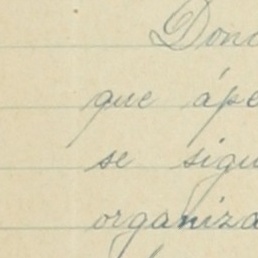 Dond
que ápe
se sigu
organiza